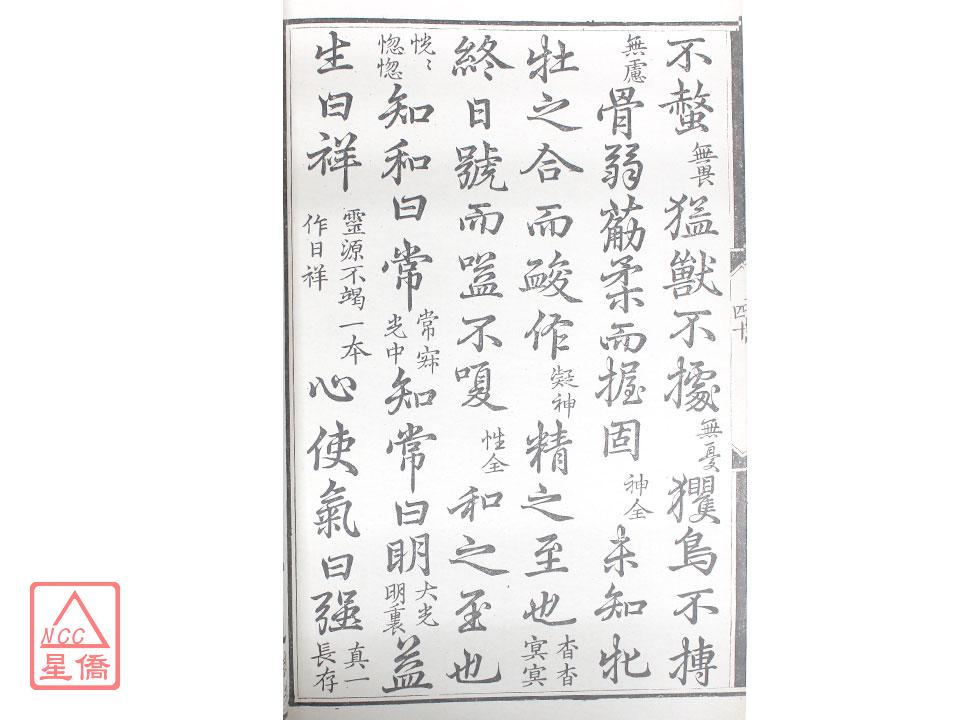 不螫無畏猛獸不據無憂玃鳥不搏
無慮骨弱觔柔而握固神全未知牝
牡之合而䘒作凝神精之至也杳杳冥冥
終日號而嗌不嗄性全和之至也
恍〻惚惚知和曰常常寂光中知常曰明大光明裏益
生曰祥靈源不竭一本作日祥心使氣曰强真一長存
四十
NCC
星僑